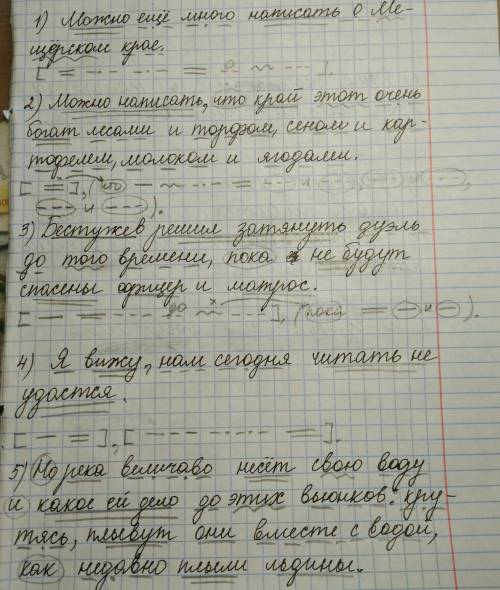 1) Можно ещё много написать о Ме-
щёрском крае.
[ = -·-· -·-· = о ~ --- ].
2) Можно написать, что край этот очень
богат лесами и торфом, сеном и кар-
тофелем, молоком и ягодами.
[ = ], (что — ~ -·-· = --- и --- , --- и --- ,
--- и --- ).
3) Бестужев решил затянуть дуэль
до того времени, пока не будут
спасены офицер и матрос.
[ — = --- до ~ --- ], (пока = — и — ).
4) Я вижу, нам сегодня читать не
удастся.
[ — = ], [ --- -·-· = ].
5) Но река величаво несёт свою воду
и какое ей дело до этих вьюнков: кру-
тясь, плывут они вместе с водой,
как недавно плыли льдины.